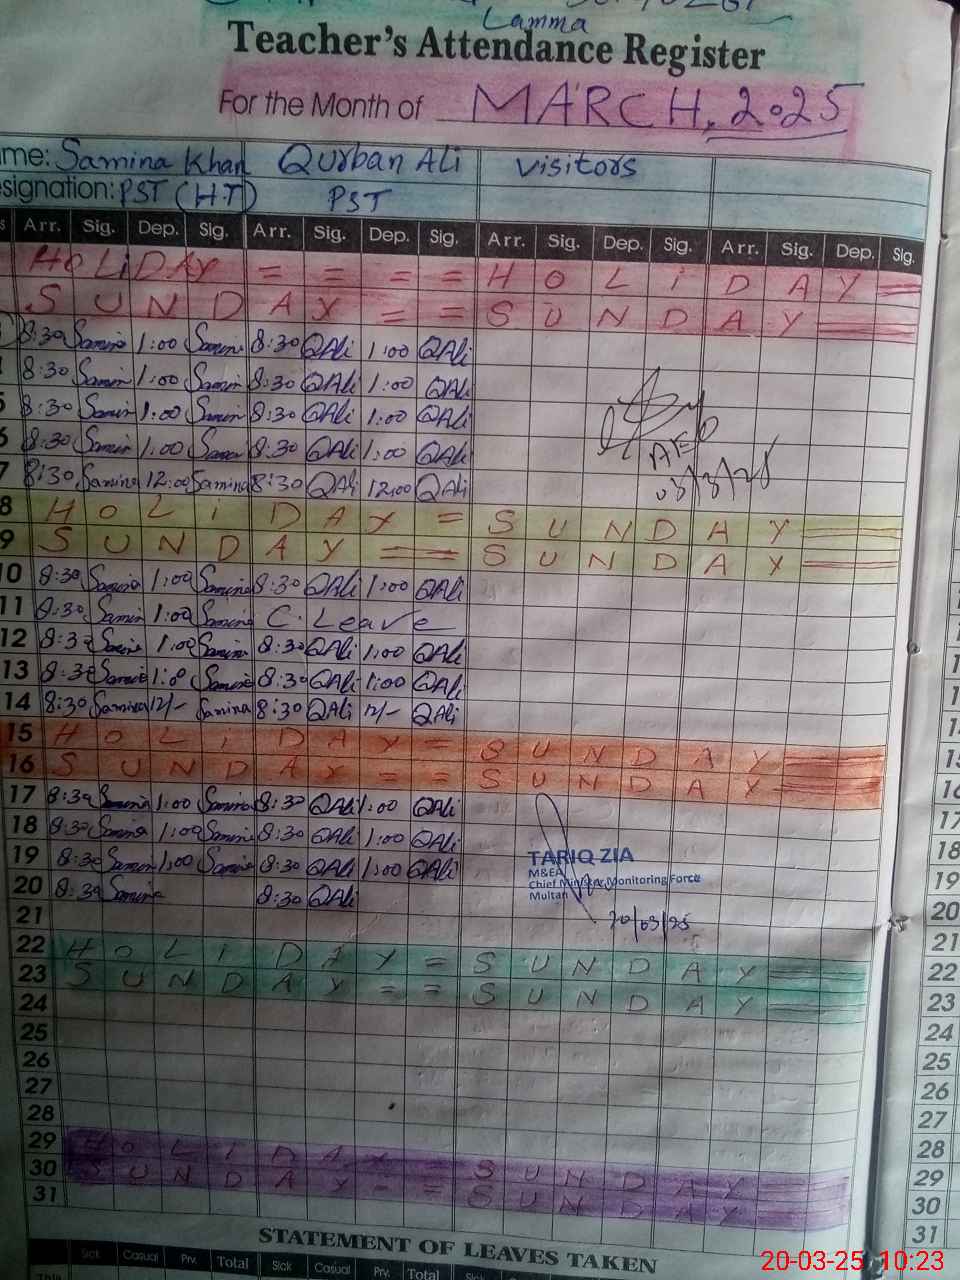 Lamma
Teacher's Attendance Register
For the Month of MARCH, 2025
me: Samina Khan Qurban Ali Visitors
esignation: PST (H.T) PST
s Arr. Sig. Dep. Sig. Arr. Sig. Dep. Sig. Arr. Sig. Dep. Sig. Arr. Sig. Dep. Sig.
HOLiDAY = = = = HOLiDAY =
SUNDAY = = SUNDAY =
8:30 Samina 1:00 Samina 8:30 QAli 1:00 QAli
8:30 Samin 1:00 Samin 8:30 QAli 1:00 QAli
5 8:30 Samin 1:00 Samin 8:30 QAli 1:00 QAli
6 8:30 Samin 1:00 Samin 8:30 QAli 1:00 QAli
AEO
7 8:30 Samina 12:00 Samina 8:30 QAli 12:00 QAli
03/3/25
8 HOLiDAY = SUNDAY =
9 SUNDAY = = SUNDAY =
10 8:30 Samina 1:00 Samina 8:30 QAli 1:00 QAli
11 8:30 Samin 1:00 Samina C. Leave
12 8:30 Samina 1:00 Samina 8:30 QAli 1:00 QAli
13 8:30 Samina 1:0 Samina 8:30 QAli 1:00 QAli
14 8:30 Samina 12/- Samina 8:30 QAli 12/- QAli
15 HOLiDAY = SUNDAY =
16 SUNDAY = = SUNDAY =
17 8:30 Samina 1:00 Samina 8:30 QAli 1:00 QAli
18 8:30 Samina 1:00 Samina 8:30 QAli 1:00 QAli
19 8:30 Samin 1:00 Samina 8:30 QAli 1:00 QAli
TARIQ ZIA
M&EA
Chief Minister Monitoring Force
Multan
20 8:30 Samina 8:30 QAli
20/03/25
21
22 HOLiDAY = SUNDAY =
23 SUNDAY = = SUNDAY =
24
25
26
27
28
29 HOLiDAY = SUNDAY =
30 SUNDAY - = SUNDAY =
31
STATEMENT OF LEAVES TAKEN
Sick Casual Prv. Total Sick Casual Prv. Total Sick Casual
14
15
16
17
18
19
20
21
22
23
24
25
26
27
28
29
30
31
20-03-25 10:23